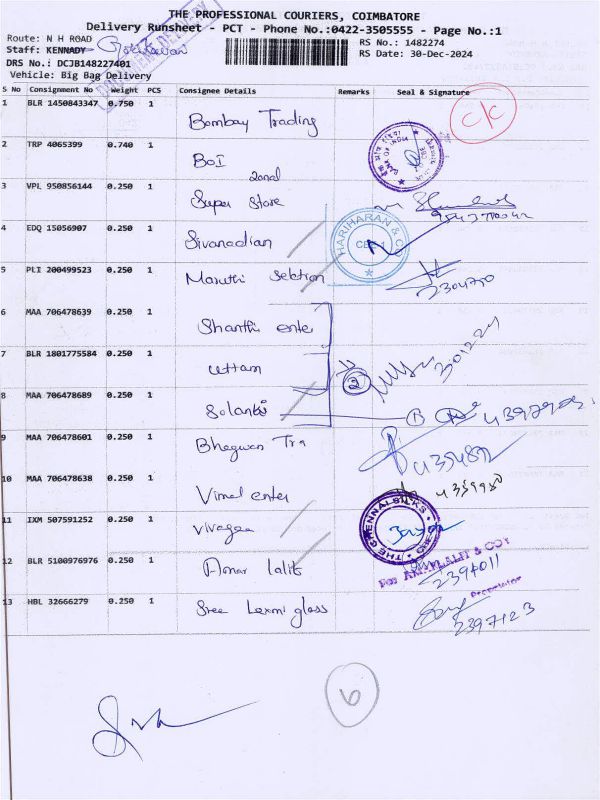 THE PROFESSIONAL COURIERS, COIMBATORE
Delivery Runsheet - PCT - Phone No.:0422-3505555 - Page No.:1
Route: N H ROAD
RS No.: 1482274
Staff: KENNADY
RS Date: 30-Dec-2024
DRS No.: DCJB148227401
Vehicle: Big Bag Delivery
S No Consignment No Weight PCS Consignee Details Remarks Seal & Signature
C/C
1 BLR 1450843347 0.750 1 Bombay Trading
2 TRP 4065399 0.740 1 BOI
BANK OF INDIA
3 VPL 950856144 0.250 1 Super Store
4 EDQ 15056907 0.250 1 Sivanadian
HARIHARAN & CO
CBE-1
5 PLI 200499523 0.250 1 Maruthi Selection
6 MAA 706478639 0.250 1 Shanthi enter
7 BLR 1801775584 0.250 1 Uttam
2 301224
8 MAA 706478689 0.250 1 Solanki
9 MAA 706478601 0.250 1 Bhagwan Tra
10 MAA 706478638 0.250 1 Vimal enter
11 IXM 507591252 0.250 1 Vivagaa
THE CHENNAI SILKS
12 BLR 5100976976 0.250 1 Amar lalit
For AMARLALIT & COY
2394011
Proprietor
13 HBL 32666279 0.250 1 Sree Laxmi glass
2397123
6